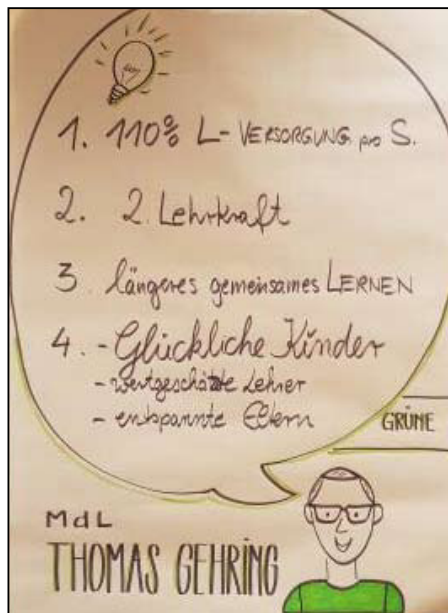 1. 110% L-VERSORGUNG pro S.
2. 2. Lehrkraft
3 längeres gemeinsames LERNEN
4. - Glückliche Kinder
- wertgeschätzte Lehrer
- entspannte Eltern
GRÜNE
MdL
THOMAS GEHRING